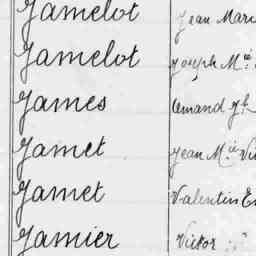 Jamelot Jean Mari
Jamelot Joseph M.ie
James Armand J.h
Jamet Jean M.ie Vi
Jamet Valentin E
Jamier Victor